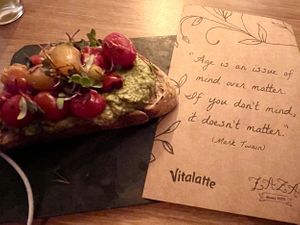 "Age is an issue of
mind over matter.
If you don't mind,
it doesn't matter."
(Mark Twain)
Vitalatte